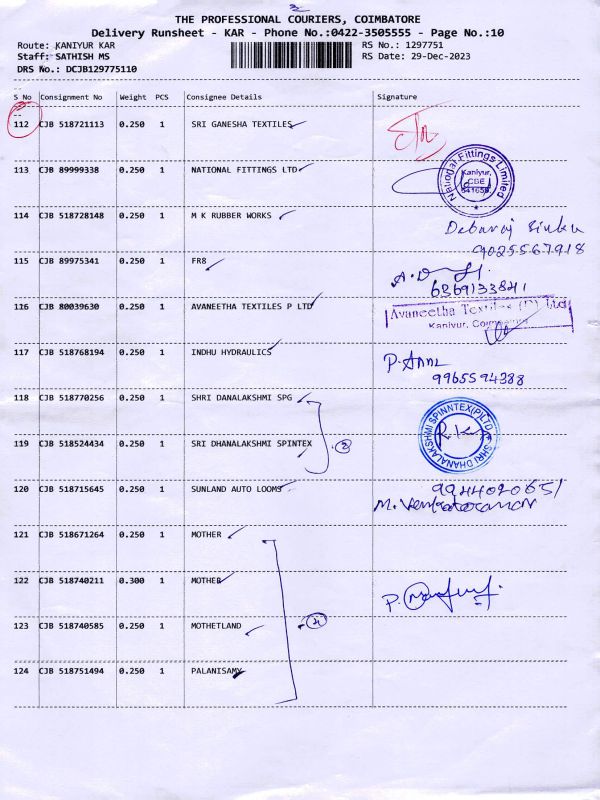 THE PROFESSIONAL COURIERS, COIMBATORE
Delivery Runsheet - KAR - Phone No.:0422-3505555 - Page No.:10
Route: KANIYUR KAR
RS No.: 1297751
Staff: SATHISH MS
RS Date: 29-Dec-2023
DRS No.: DCJB129775110
S No Consignment No Weight PCS Consignee Details Signature
112 CJB 518721113 0.250 1 SRI GANESHA TEXTILES
113 CJB 89999338 0.250 1 NATIONAL FITTINGS LTD
National Fittings Limited
Kaniyur,
CBE
641659
114 CJB 518728148 0.250 1 M K RUBBER WORKS
Debaraj
9025567918
115 CJB 89975341 0.250 1 FR8
6369133841
116 CJB 80039630 0.250 1 AVANEETHA TEXTILES P LTD
Avaneetha Textiles (P) Ltd
Kaniyur,
117 CJB 518768194 0.250 1 INDHU HYDRAULICS
9965594388
118 CJB 518770256 0.250 1 SHRI DANALAKSHMI SPG
119 CJB 518524434 0.250 1 SRI DHANALAKSHMI SPINTEX
2
SHRI DHANALAKSHMI SPINNTEX(P)LTD
R.K
120 CJB 518715645 0.250 1 SUNLAND AUTO LOOMS
9944020651
M. Venkataraman
121 CJB 518671264 0.250 1 MOTHER
122 CJB 518740211 0.300 1 MOTHER
123 CJB 518740585 0.250 1 MOTHETLAND
4
124 CJB 518751494 0.250 1 PALANISAMY